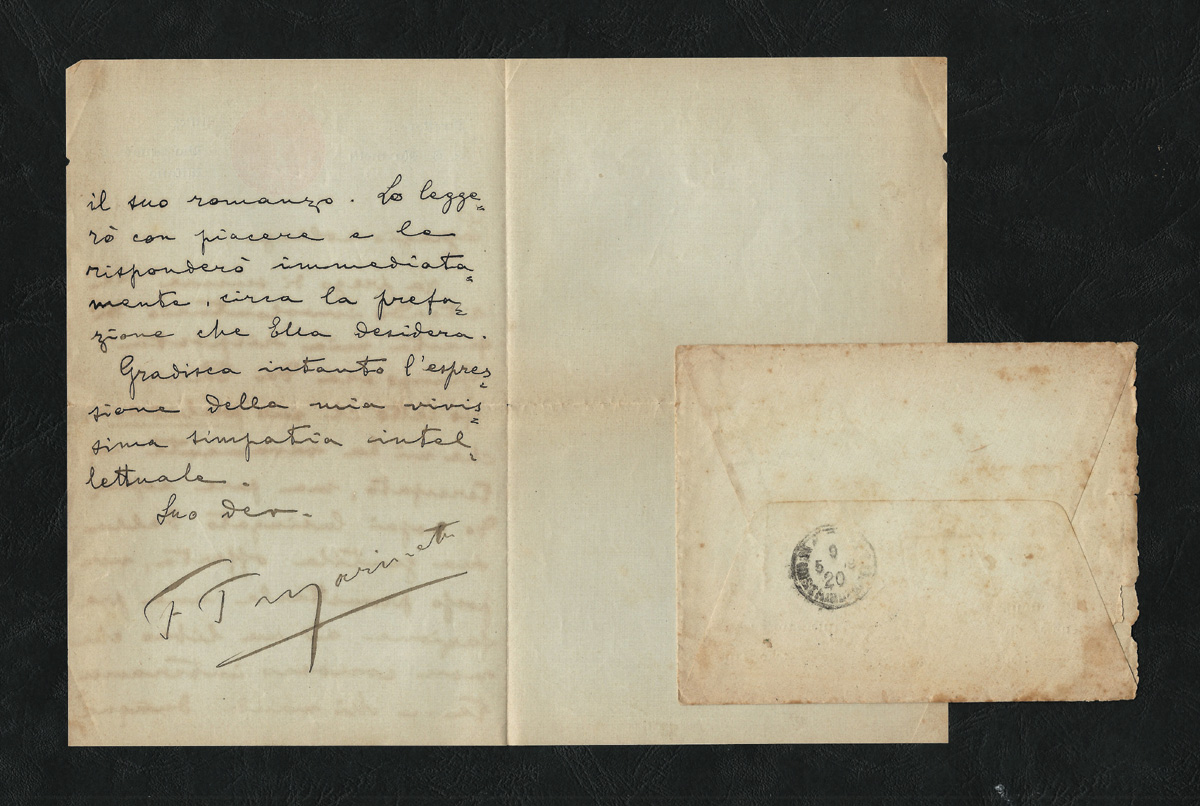 il suo romanzo. Lo legge=
rò con piacere e le
risponderò immediata=
mente, circa la prefa=
zione che Ella desidera.
Gradisca intanto l'espres=
sione della mia vivis=
sima simpatia intel=
lettuale.
Suo dev.
F T Marinetti
9
5
20